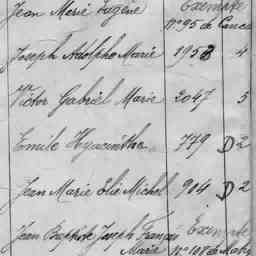 Jean Marie Eugène Exempté
n° 95 de Cancale
Joseph Adolphe Marie 1953 4
Victor Gabriel Marie 2047 5
Emile Hyacinthe 779 D 2
Jean Marie Elie Michel 904 D 2
Jean Baptiste Joseph François Exempté
Marie n° 108 de